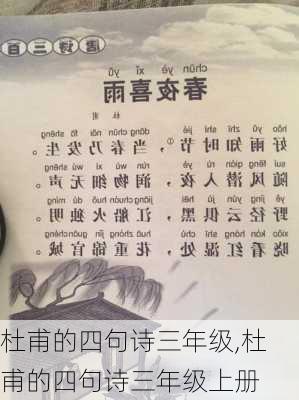 唐诗三百
chūn yè xǐ yǔ
春夜喜雨
杜 甫
hǎo yǔ zhī shí jié dāng chūn nǎi fā shēng
好雨知时节①，当春乃发生。
suí fēng qián rù yè rùn wù xì wú shēng
随风潜入夜，润物细无声。
yě jìng yún jù hēi jiāng chuán huǒ dú míng
野径云俱黑，江船火独明。
xiǎo kàn hóng shī chù huā zhòng jǐn guān chéng
晓看红湿处，花重锦官城。
杜甫的四句诗三年级,杜
甫的四句诗三年级上册